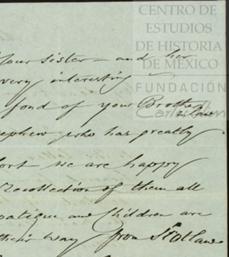 CENTRO DE
ESTUDIOS
DE HISTORIA
DE MÉXICO
FUNDACIÓN
Your sister and her
very interesting
fond of your Brother
nephew who has greatly
fort we are happy
recollection of them all
and Children are
their way from Scotland